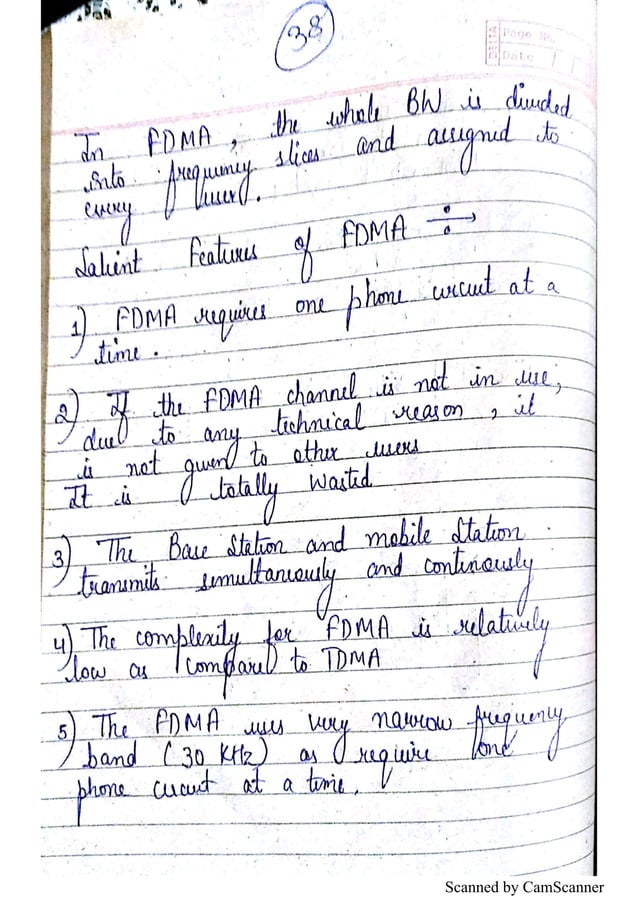 38
DELTA Page No.
Date
In FDMA, the whole BW is divided
into frequency slices and assigned to
every user.
Salient Features of FDMA ÷→
1) FDMA requires one phone circuit at a
time.
2) If the FDMA channel is not in use,
due to any technical reason, it
is not given to other users
It is totally wasted
3) The Base Station and mobile Station
transmits simultaneously and continously
4) The complexity for FDMA is relatively
low as compared to TDMA
5) The FDMA uses very narrow frequency
band (30 KHz) as require one
phone circuit at a time.
Scanned by CamScanner